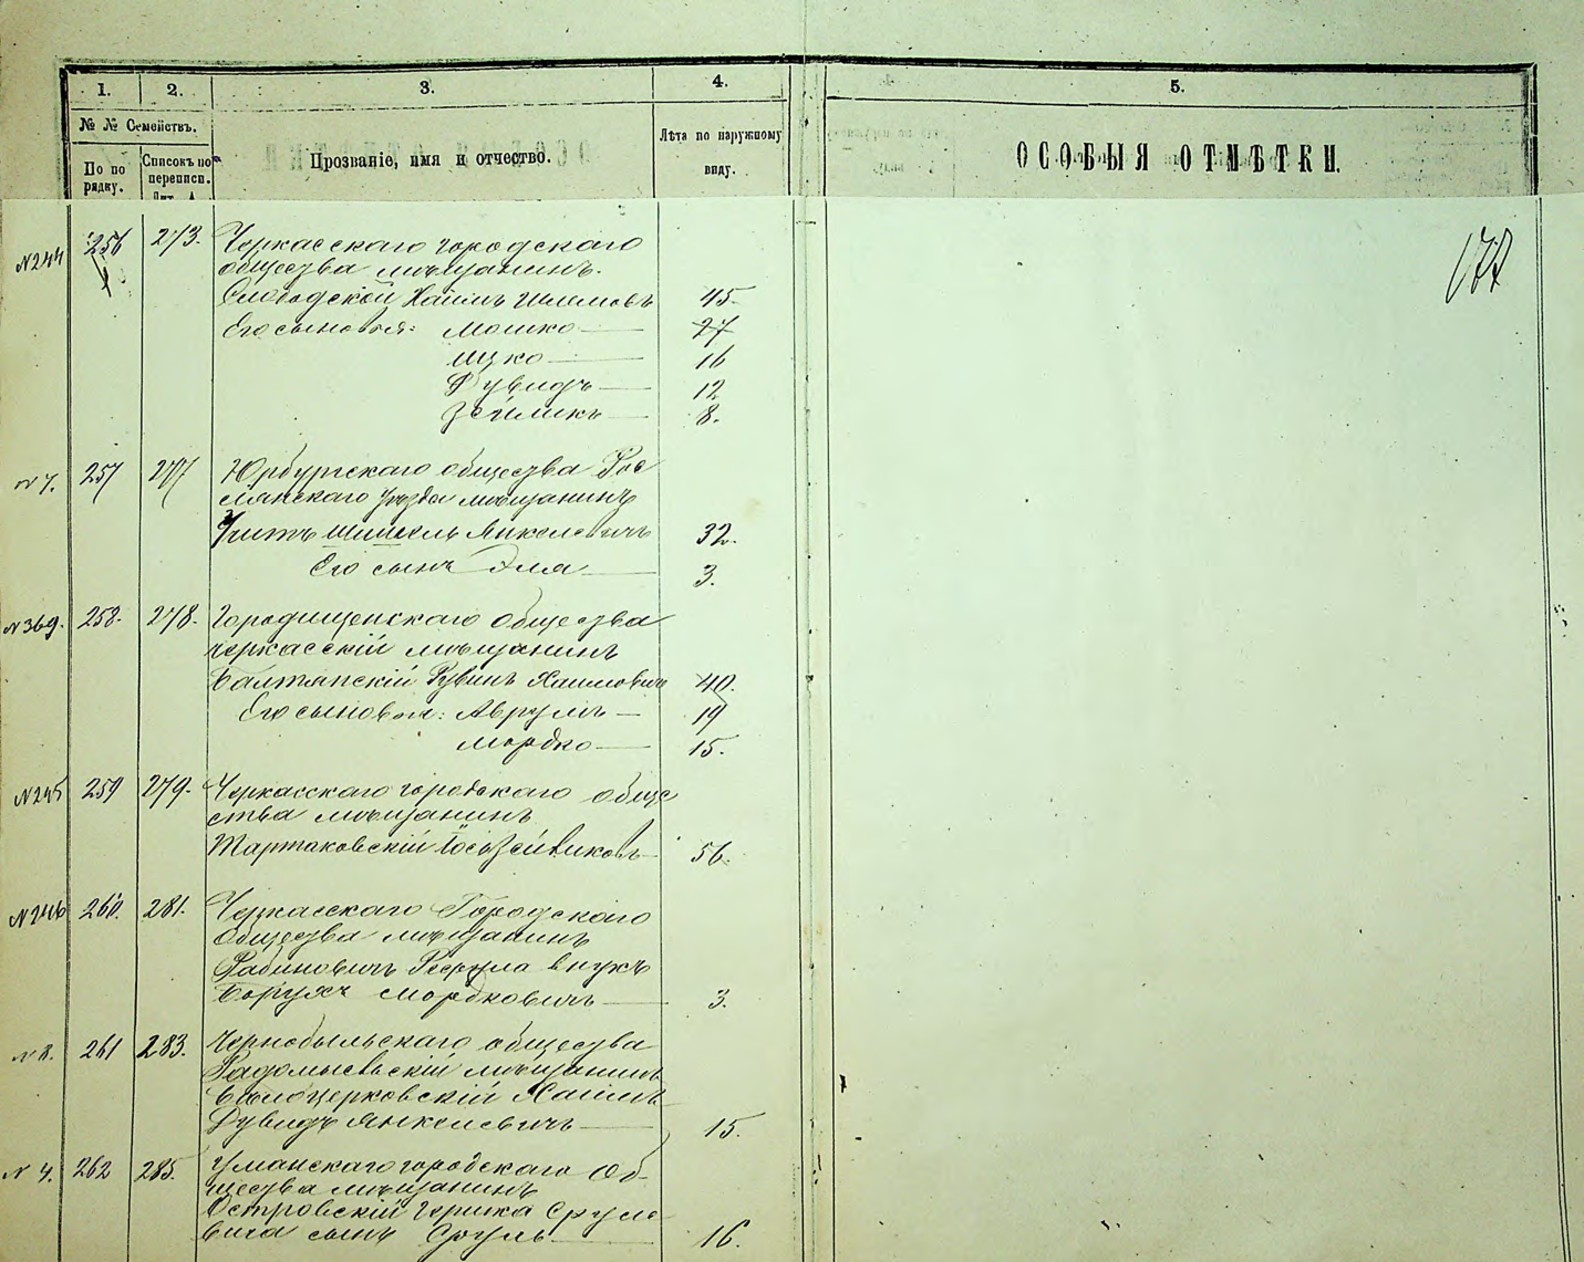 1. 2. 3. 4. 5.
№ № Семействъ.
По по
рядку.
Списокъ по
переписи.
Прозваніе, имя и отчество.
Лѣта по наружному
виду.
ОСОБЫЯ ОТМѢТКИ.
177
N244 256 273. Черкасскаго городскаго
общества мѣщанинъ.
Слободской Хаимъ Шлемовъ 45.
Его сыновья: Мошко 27
Ицко 16
Дувидъ 12
Зейликъ 8.
N 7. 257 277 Юрбургскаго общества Рос
сіянскаго уѣзда мѣщанинъ
Шмшель Янкелевичъ 32.
Его сынъ Эля 3.
N369. 258. 278. Городищенскаго общества
черкасскій мѣщанинъ
Балтянскій Рувинъ Хаимовичъ 40.
Его сыновья: Аврумъ 19
Мордко 15.
N245 259 279. Черкасскаго городскаго обще
ства мѣщанинъ
Тартаковскій Іось Зейвиковъ 56.
N246 260. 281. Черкасскаго Городскаго
общества мѣщанинъ
Рабиновичъ внукъ
Борухъ Мордковичъ 3.
N 8. 261 283. Чернобыльскаго общества
Радомысльскій мѣщанинъ
Бѣлоцерковскій Хаимъ
Дувидъ Янкелевичъ 15.
N 4. 262 285. Уманскаго городскаго об-
щества мѣщанинъ
Островскій Гершка Сруле
вича сынъ Сруль 16.